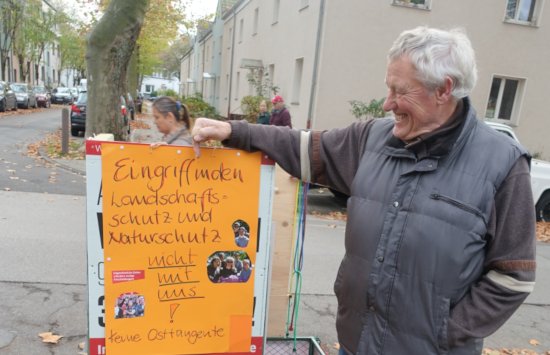 Eingriff in den
Landschafts=
schutz und
Naturschutz
nicht
mit
uns
!
keine Osttangente